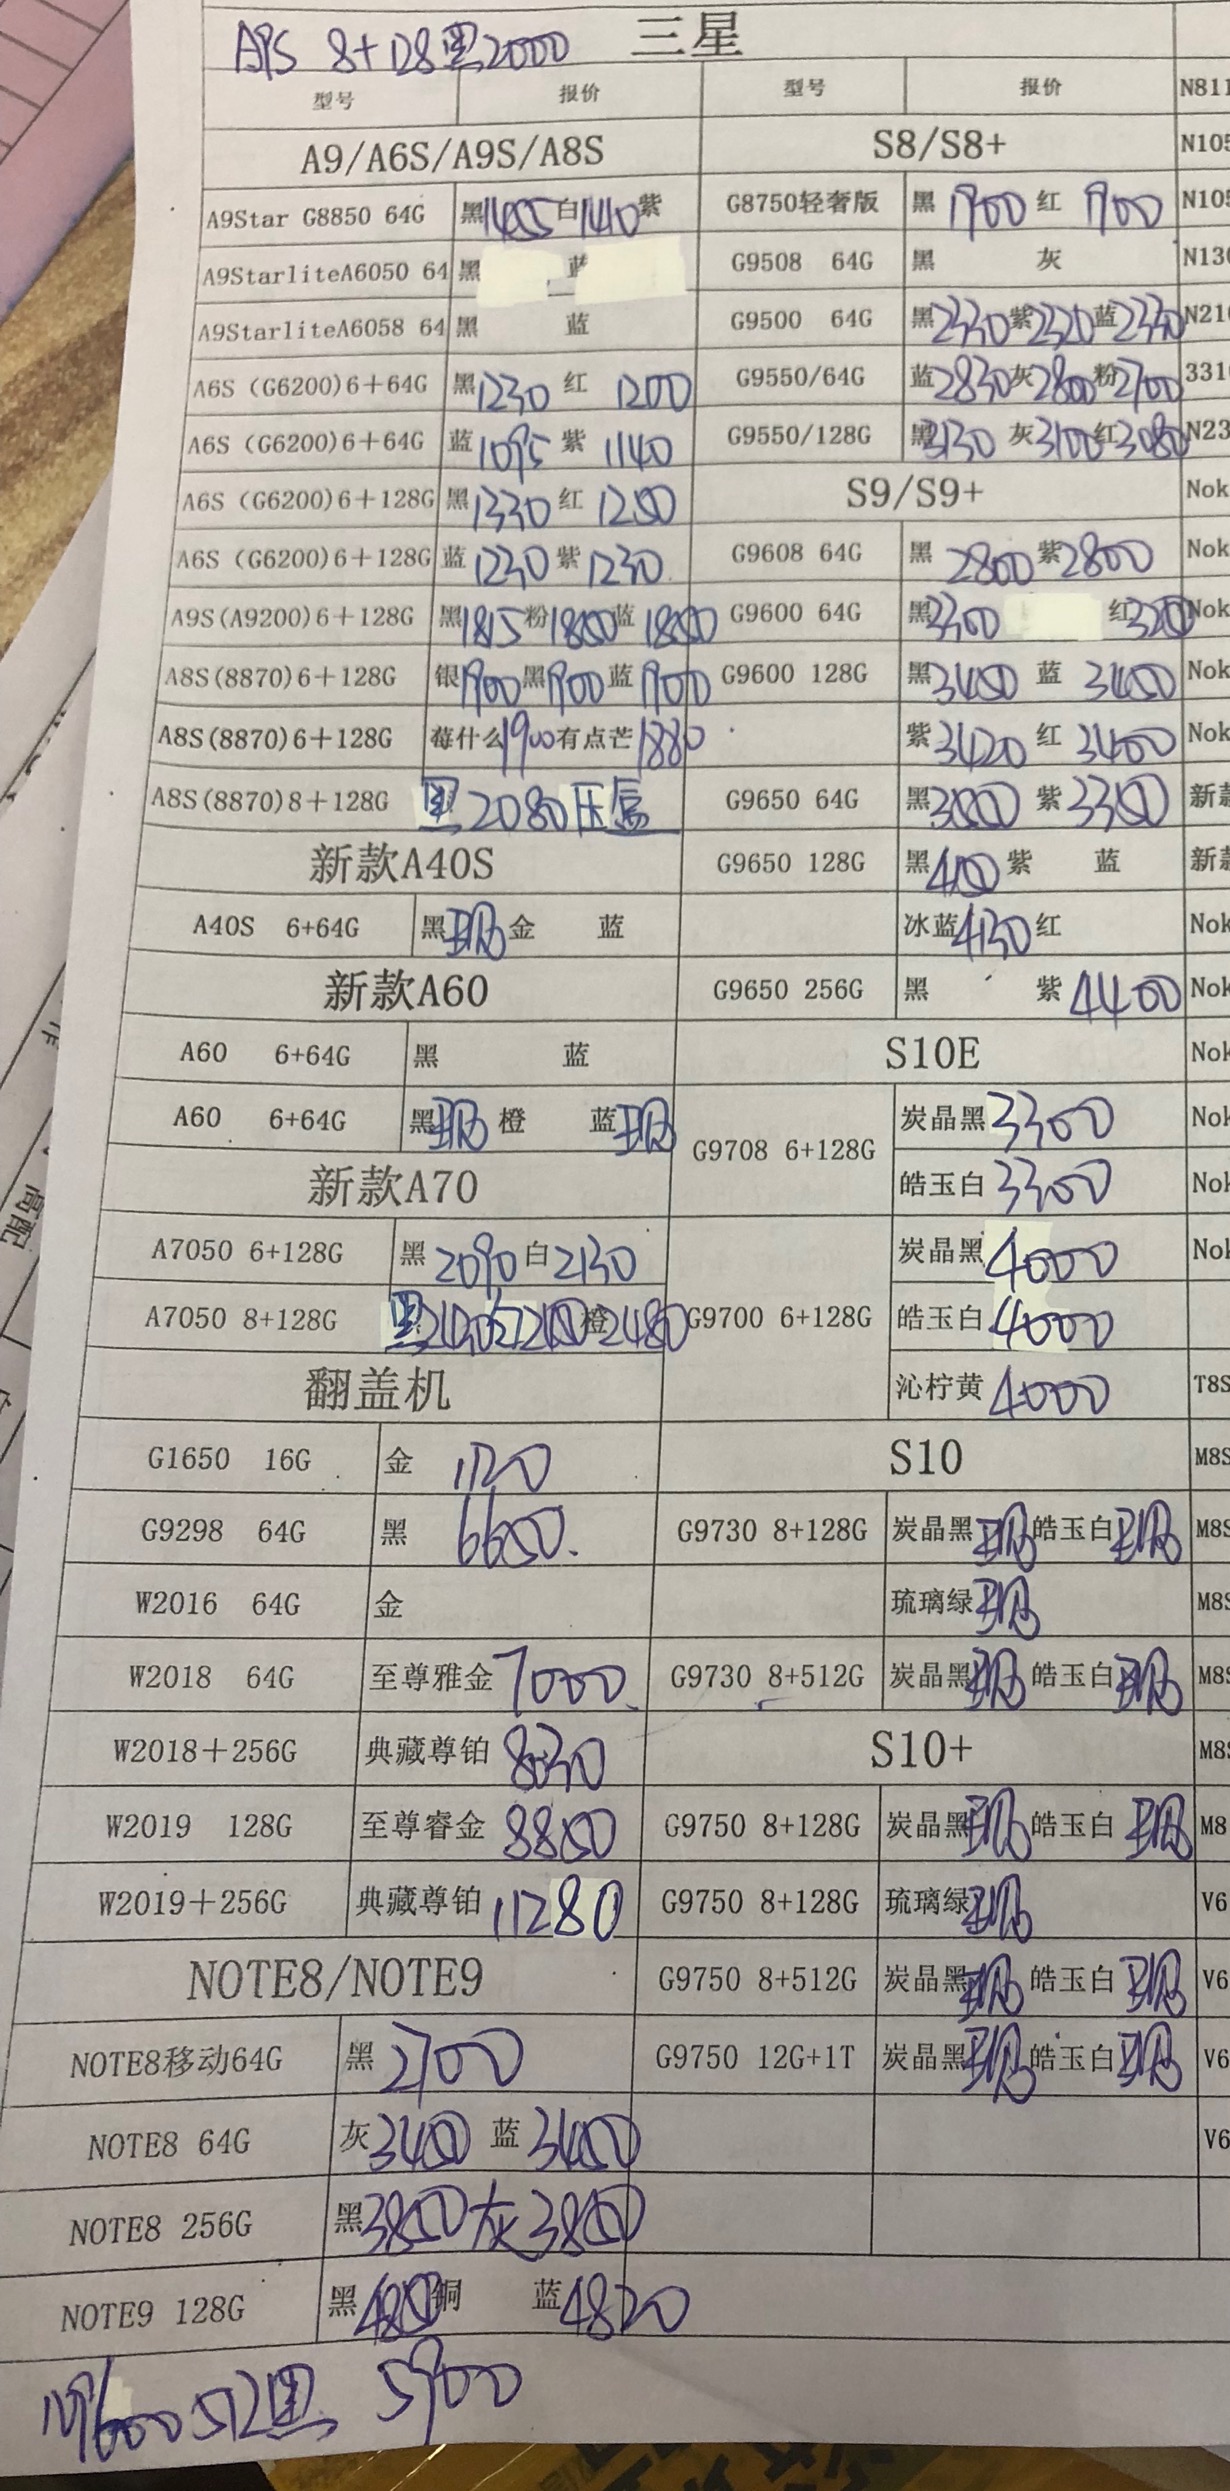 8+128黑2000 三星
型号 报价 型号 报价 N811
A9/A6S/A9S/A8S S8/S8+ N105
A9Star G8850 64G 黑1455白1410紫 G8750轻奢版 黑 1900 红 1900 N105
A9StarliteA6050 64 黑 蓝 G9508 64G 黑 灰 N130
A9StarliteA6058 64 黑 蓝 G9500 64G 黑2330紫2320蓝2330 N210
A6S (G6200)6+64G 黑1230 红 1200 G9550/64G 蓝2830灰2800粉2700 3310
A6S (G6200)6+64G 蓝1095 紫 1140 G9550/128G 黑3130 灰3100红3080 N23
A6S (G6200)6+128G 黑1330 红 1250 S9/S9+ Nok
A6S (G6200)6+128G 蓝1230 紫1230 G9608 64G 黑 2800 紫2800 Nok
A9S(A9200)6+128G 黑1815粉1800蓝1800 G9600 64G 黑3300 红 Nok
A8S(8870)6+128G 银1900黑1900蓝1900 G9600 128G 黑3450 蓝 3450 Nok
A8S(8870)6+128G 莓什么1900有点芒1880 紫3420 红 3400 Nok
A8S(8870)8+128G 黑2080压 G9650 64G 黑 紫 新款
新款A40S G9650 128G 黑4100紫 蓝 新款
A40S 6+64G 黑 金 蓝 冰蓝4130红 Nok
新款A60 G9650 256G 黑 紫4400 Nok
A60 6+64G 黑 蓝 S10E Nok
A60 6+64G 黑 橙 蓝 G9708 6+128G 炭晶黑3300 Nok
新款A70 皓玉白3300 Nok
A7050 6+128G 黑 2090白2130 炭晶黑4000 Nok
A7050 8+128G 黑 橙2480 G9700 6+128G 皓玉白4000
翻盖机 沁柠黄4000 T8S
G1650 16G 金 1120 S10 M8S
G9298 64G 黑 6650 G9730 8+128G 炭晶黑 皓玉白 M8S
W2016 64G 金 琉璃绿 M8S
W2018 64G 至尊雅金7000 G9730 8+512G 炭晶黑 皓玉白 M8S
W2018+256G 典藏尊铂 8030 S10+ M8S
W2019 128G 至尊睿金 8850 G9750 8+128G 炭晶黑 皓玉白 M8
W2019+256G 典藏尊铂11280 G9750 8+128G 琉璃绿 V6
NOTE8/NOTE9 G9750 8+512G 炭晶黑 皓玉白 V6
NOTE8移动64G 黑 2700 G9750 12G+1T 炭晶黑 皓玉白 V6
NOTE8 64G 灰3450 蓝 3450 V6
NOTE8 256G 黑3850灰3850
NOTE9 128G 黑 铜 蓝4820
512黑 5900